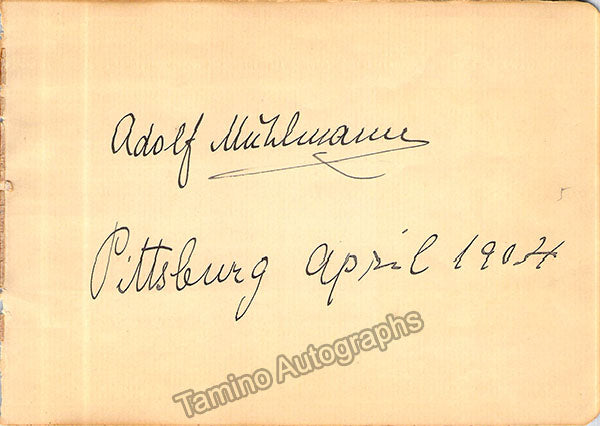 Adolf Mühlmann
Pittsburg April 1904
Tamino Autographs